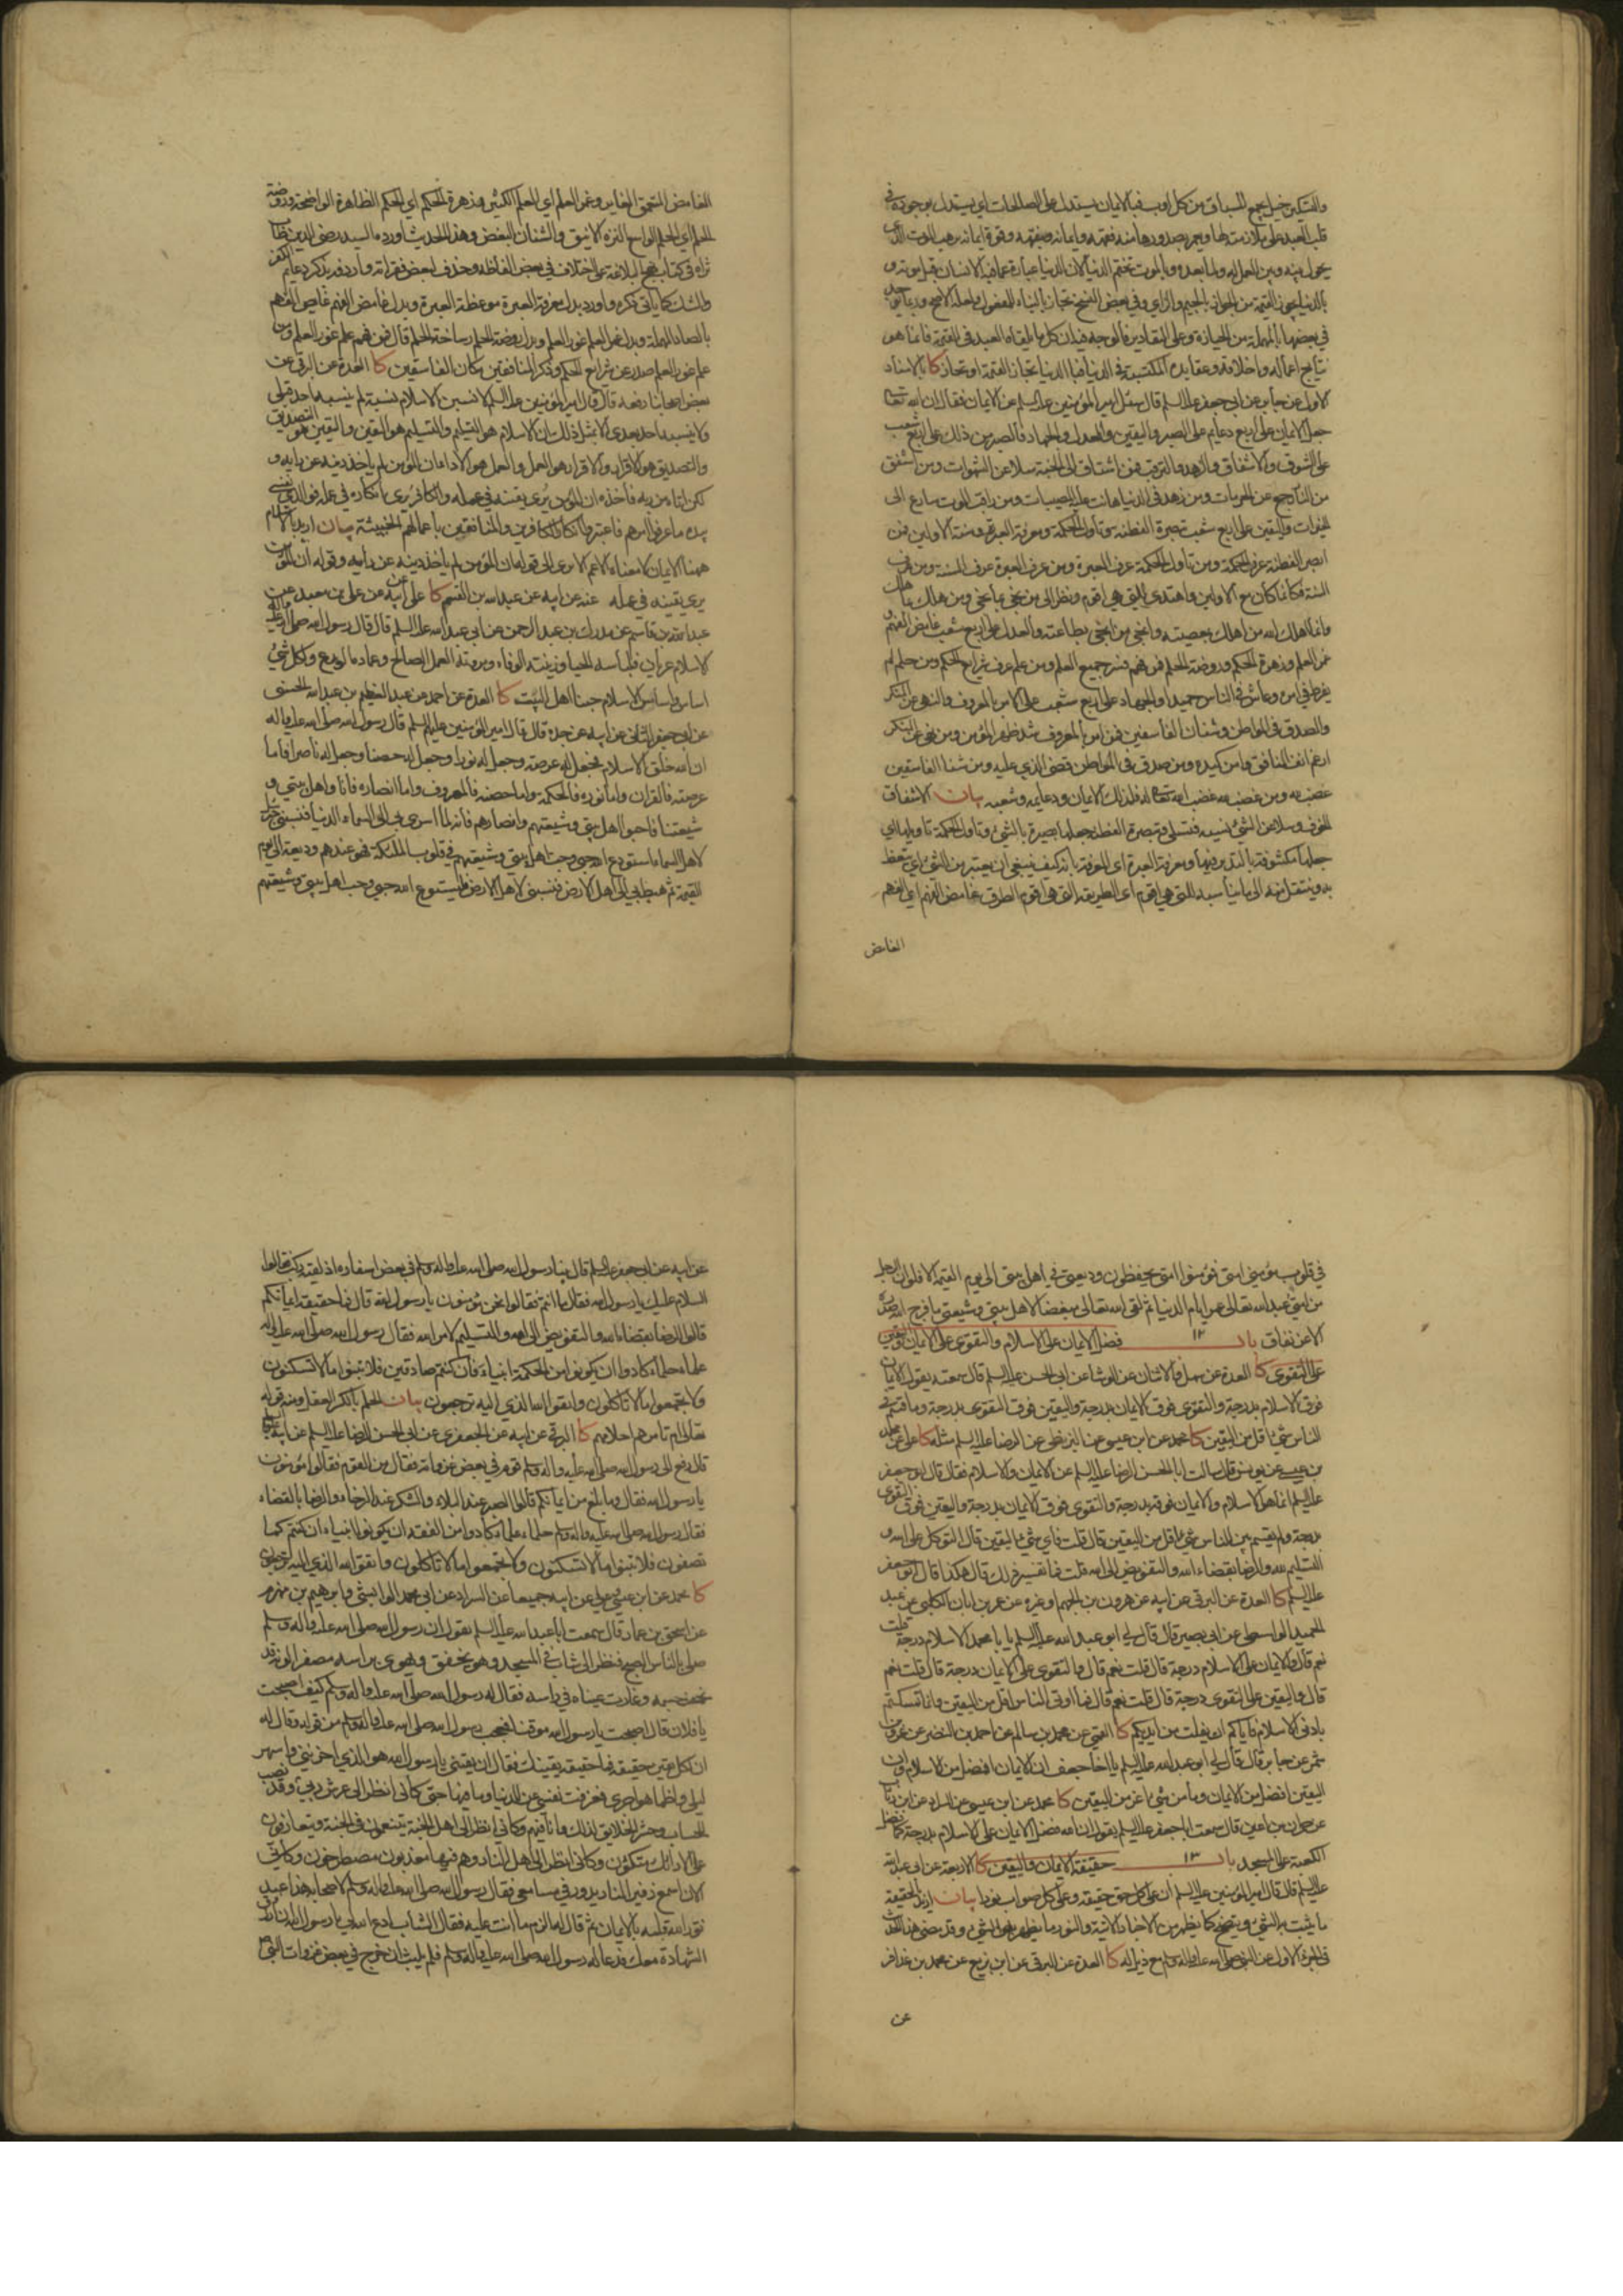 والمسكين خيل يجمع السباق من كل اوب فبالايمان يستدل على الصالحات اي يستدل بوجوده في
قلب العبد على ملازمته لها
يحول بينه وبين العمل له ولما بعده وبالموت تختم الدنيا لان الدنيا عبارة عما فيه الانسان قبل موته و
بالدنيا تجوز القيمة من الجواز بالجيم والزاي وفي بعض النسخ تحاز
في بعضها بالمهملة من الحيازة وعلى التقادير فالوجه فيه ان كل ما يلقاه العبد في القيمة فانما هو
نتايج اعماله واخلاقه وعقايده المكتسبة في الدنيا فبالدنيا تجاز القيمة او تحاز كا بالاسناد
الاول عن جابر عن ابي جعفر عليه السلم قال سئل امير المؤمنين عليه السلم عن الايمان فقال ان الله تعالى
جعل الايمان على اربع دعايم على الصبر واليقين والعدل والجهاد فالصبر من ذلك على اربع شعب
على الشوق والاشفاق والزهد والترقب فمن اشتاق الى الجنة سلا عن الشهوات ومن اشفق
من النار رجع عن الحرمات ومن زهد في الدنيا هانت عليه المصيبات ومن راقب الموت سارع الى
الخيرات واليقين على اربع شعب تبصرة الفطنة وتأول الحكمة ومعرفة العبرة وسنة الاولين فمن
ابصر الفطنة عرف الحكمة ومن تأول الحكمة عرف العبرة ومن عرف العبرة عرف السنة ومن عرف
السنة فكانما كان مع الاولين واهتدى للتي هي اقوم ونظر الى من نجى بما نجى ومن هلك بما هلك
وانما اهلك الله من اهلك بمعصيته وانجى من انجى بطاعته والعدل على اربع شعب غامض الفهم و
غمر العلم وزهرة الحكم وروضة الحلم فمن فهم فسر جميع العلم ومن علم عرف شرايع الحكم ومن حلم لم
يفرط في امره وعاش في الناس حميدا والجهاد على اربع شعب على الامر بالمعروف والنهي عن المنكر
والصدق في المواطن وشنآن الفاسقين فمن امر بالمعروف شد ظهر المؤمن ومن نهى عن المنكر
ارغم انف المنافق وامن كيده ومن صدق في المواطن قضى الذي عليه ومن شنا الفاسقين
غضب لله ومن غضب لله غضب الله تعالى له فذلك الايمان ودعايمه وشعبه بيان الاشفاق
الخوف وسلا عن الشئ نسيه فتسلى وتبصرة الفطنة جعلها بصيرة بالشئ وتاول الحكمة تاويلها اي
جعلها مكشوفة بالتدبر فيها ومعرفة العبرة اي المعرفة بانه كيف ينبغي ان يعتبر من الشئ اي يتعظ
به وينتقل منه الى ما يناسبه للتي هي اقوم اي الطريقة التي هي اقوم الطرق غامض الفهم اي الفهم
الغامض
الغامض المتعمق الغاير وغمر العلم اي العلم الكثير وزهرة الحكم اي الحكم الظاهرة الواضحة وروضة
الحلم اي الحلم الواسع النزه الانيق والشنآن البغض وهذا الحديث اورده السيد رضي الدين طاب
ثراه في كتاب نهج البلاغة على اختلاف في بعض الفاظه وحذف لبعض فقراته واردفه بذكر دعايم الكفر
والشك كما ياتي ذكره واورد بدل معرفة العبرة موعظة العبرة وبدل غامض الفهم غايص الفهم
بالصاد المهملة وبدل غمر العلم غور العلم وبدل روضة الحلم رساخة الحلم قال فمن فهم علم غور العلم ومن
علم غور العلم صدر عن شرايع الحكم وذكر المنافقين مكان الفاسقين كا العدة عن البرقي عن
بعض اصحابنا رفعه قال قال امير المؤمنين عليه السلم لانسبن الاسلام نسبة لم ينسبه احد قبلي
ولا ينسبه احد بعدي الا بمثل ذلك ان الاسلام هو التسليم والتسليم هو اليقين واليقين هو التصديق
والتصديق هو الاقرار والاقرار هو العمل والعمل هو الاداء ان المؤمن لم ياخذ دينه عن رايه و
لكن اتاه من ربه فاخذه ان المؤمن يرى يقينه في عمله والكافر يرى انكاره في عمله فوالذي نفسي
بيده ما عرفوا امرهم فاعتبروا انكار الكافرين والمنافقين باعمالهم الخبيثة بيان اريد بالاسلام
ههنا الايمان
يرى يقينه في عمله عنه عن ابيه عن عبد الله بن القسم كا علي عن ابيه عن علي بن معبد عن
عبد الله بن قاسم عن مدرك بن عبد الرحمن عن ابي عبد الله عليه السلم قال قال رسول الله صلى الله عليه واله
الاسلام عريان فلباسه الحيا وزينته الوفاء ومروته العمل الصالح وعماده الورع ولكل شئ
اساس واساس الاسلام حبنا اهل البيت كا العدة عن احمد عن عبد العظيم بن عبد الله الحسني
عن ابي جعفر الثاني عن ابيه عن جده قال قال امير المؤمنين عليهم السلم قال رسول الله صلى الله عليه واله
ان الله خلق الاسلام فجعل له عرصة وجعل له نورا وجعل له حصنا وجعل له ناصرا فاما
عرصته فالقران واما نوره فالحكمة واما حصنه فالمعروف واما انصاره فانا واهل بيتي و
شيعتنا فاحبوا اهل بيتي وشيعتهم وانصارهم فانه لما اسرى بي الى السماء الدنيا فنسبني جبرئيل
لاهل السماء استودع الله حبي وحب اهل بيتي وشيعتهم في قلوب الملئكة فهو عندهم وديعة الى يوم
القيمة ثم هبط بي الى اهل الارض فنسبني لاهل الارض فاستودع الله حبي وحب اهل بيتي وشيعتهم
في قلوب مؤمني امتي فمؤمنوا امتي يحفظون وديعتي في اهل بيتي الى يوم القيمة الا فلو ان الرجل
من امتي عبد الله تعالى عمره ايام الدنيا ثم لقي الله تعالى مبغضا لاهل بيتي وشيعتي ما فرج الله صدره
الا عن نفاق باب ١٢ فضل الايمان على الاسلام والتقوى على الايمان واليقين
على التقوى كا العدة عن سهل والاثنان عن الوشا عن ابي الحسن عليه السلم قال سمعته يقول الايمان
فوق الاسلام بدرجة والتقوى فوق الايمان بدرجة واليقين فوق التقوى بدرجة وما قسم في
الناس شئ اقل من اليقين كا محمد عن ابن عيسى عن البزنطي عن الرضا عليه السلم مثله كا علي عن محمد
بن عيسى عن يونس قال سالت ابا الحسن الرضا عليه السلم عن الايمان والاسلام فقال قال ابو جعفر
عليه السلم انما هو الاسلام والايمان فوقه بدرجة والتقوى فوق الايمان بدرجة واليقين فوق التقوى
بدرجة ولم يقسم بين الناس شئ اقل من اليقين قال قلت فاي شئ اليقين قال التوكل على الله و
التسليم لله والرضا بقضاء الله والتفويض الى الله قلت فما تفسير ذلك قال هكذا قال ابو جعفر
عليه السلم كا العدة عن البرقي عن ابيه عن هرون بن الجهم او غيره عن عمر بن ابان الكلبي عن عبد
الحميد الواسطي عن ابي بصير قال قال لي ابو عبد الله عليه السلم يا با محمد الاسلام درجة قلت
نعم قال والايمان على الاسلام درجة قال قلت نعم قال والتقوى على الايمان درجة قال قلت نعم
قال واليقين على التقوى درجة قال قلت نعم قال فما اوتي الناس اقل من اليقين وانما تمسكتم
بادنى الاسلام فاياكم ان يفلت من ايديكم كا القمي عن محمد بن سالم عن احمد بن النضر عن عمرو بن
شمر عن جابر قال قال لي ابو عبد الله عليه السلم يا اخا جعف ان الايمان افضل من الاسلام وان
اليقين افضل من الايمان وما من شئ اعز من اليقين كا محمد عن ابن عيسى عن السراد عن ابن رئاب
عن حمران بن اعين قال سمعت ابا جعفر عليه السلم يقول ان الله فضل الايمان على الاسلام بدرجة كما فضل
الكعبة على المسجد باب ١٣ حقيقة الايمان واليقين كا الاربعة عن ابي عبد الله
عليه السلم قال قال امير المؤمنين عليه السلم ان على كل حق حقيقة وعلى كل صواب نورا بيان اريد بالحقيقة
في الجزء الاول عن النبي صلى الله عليه واله وسلم مع ذيل له كا العدة عن البرقي عن ابن بزيع عن محمد بن عذافر
عن
عن ابيه عن ابي جعفر عليه السلم قال بينا رسول الله صلى الله عليه واله وسلم في بعض اسفاره اذ لقيه ركب فقالوا
السلام عليك يا رسول الله فقال ما انتم فقالوا نحن مؤمنون يا رسول الله قال فما حقيقة ايمانكم
قالوا الرضا بقضاء الله والتفويض الى الله والتسليم لامر الله فقال رسول الله صلى الله عليه واله
علماء حلماء كادوا ان يكونوا من الحكمة انبياء فان كنتم صادقين فلا تبنوا ما لا تسكنون
ولا تجمعوا ما لا تاكلون واتقوا الله الذي اليه ترجعون بيان الحلم بالكسر العقل ومنه قوله
تعالى ام تامرهم احلامهم كا البرقي عن ابيه عن الجعفري عن ابي الحسن الرضا عليه السلم عن ابيه
قال رفع الى رسول الله صلى الله عليه واله وسلم قوم في بعض غزواته فقال من القوم فقالوا مؤمنون
يا رسول الله فقال وما بلغ من ايمانكم قالوا الصبر عند البلاء والشكر عند الرخاء والرضا بالقضاء
فقال رسول الله صلى الله عليه واله وسلم حلماء علماء كادوا من الفقه ان يكونوا انبياء ان كنتم كما
تصفون فلا تبنوا ما لا تسكنون ولا تجمعوا ما لا تاكلون واتقوا الله الذي اليه ترجعون
كا محمد عن ابن عيسى وعلي عن ابيه جميعا عن السراد عن ابي محمد الوابشي وابرهيم بن مهزم
عن اسحق بن عمار قال سمعت ابا عبد الله عليه السلم يقول ان رسول الله صلى الله عليه واله وسلم
صلى بالناس الصبح فنظر الى شاب في المسجد وهو يخفق ويهوي براسه مصفرا لونه قد
نحف جسمه وغارت عيناه في راسه فقال له رسول الله صلى الله عليه واله وسلم كيف اصبحت
يا فلان قال اصبحت يا رسول الله موقنا فعجب رسول الله صلى الله عليه واله وسلم من قوله وقال له
ان لكل يقين حقيقة فما حقيقة يقينك فقال ان يقيني يا رسول الله هو الذي احزنني واسهر
ليلي واظما هواجري فعزفت نفسي عن الدنيا وما فيها حتى كاني انظر الى عرش ربي وقد نصب
للحساب وحشر الخلايق لذلك وانا فيهم وكاني انظر الى اهل الجنة يتنعمون في الجنة ويتعارفون
على الارائك متكئون وكاني انظر الى اهل النار وهم فيها معذبون مصطرخون وكاني
الان اسمع زفير النار يدور في مسامعي فقال رسول الله صلى الله عليه واله وسلم لاصحابه هذا عبد
نور الله قلبه بالايمان ثم قال له الزم ما انت عليه فقال الشاب ادع الله لي يا رسول الله ان ارزق
الشهادة معك فدعا له رسول الله صلى الله عليه واله وسلم فلم يلبث ان خرج في بعض غزوات النبي